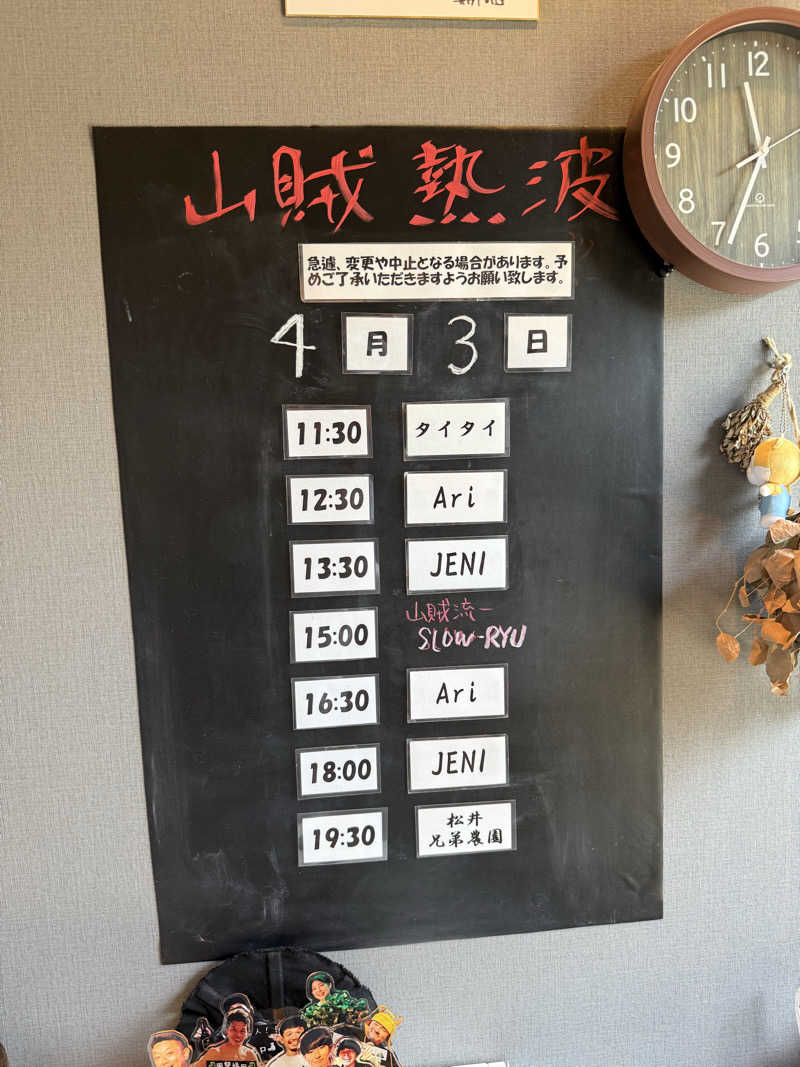 山賊 熱波
急遽、変更や中止となる場合があります。予
めご了承いただきますようお願い致します。
4 月 3 日
11:30 タイタイ
12:30 Ari
13:30 JENI
15:00 山賊流一
SLOW-RYU
16:30 Ari
18:00 JENI
19:30 松井
兄弟農園
12
11
10
9
8
7
6
5